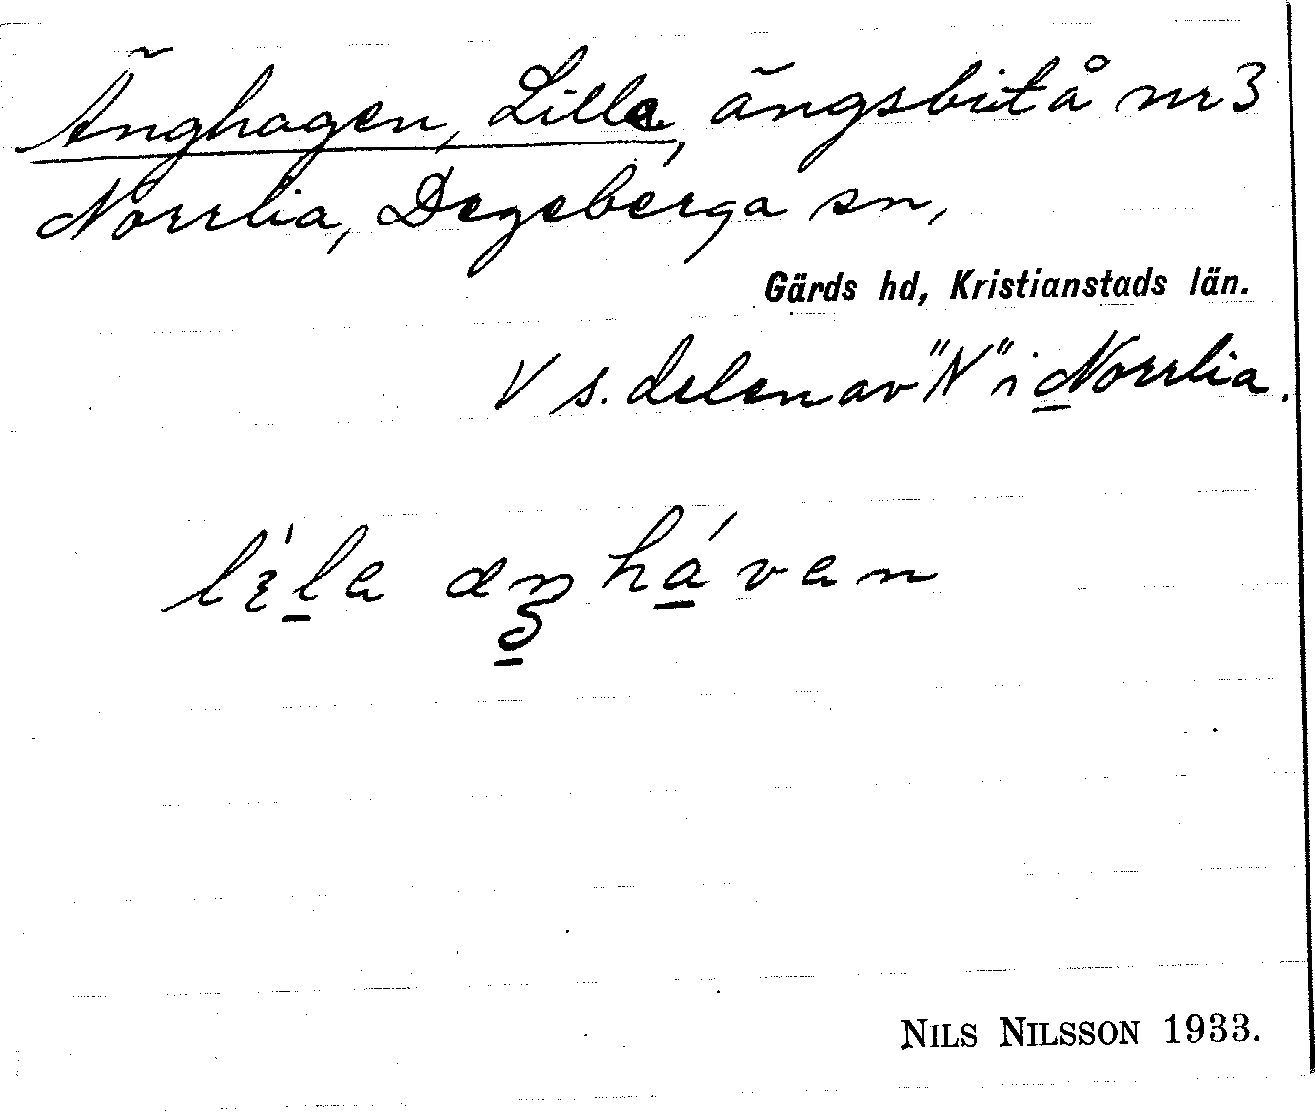 Änghagen, Lille, ängsbit å nr 3
Norrlia, Degeberga sn,
Gärds hd, Kristianstads län.
V s. delen av "N" i Norrlia.
NILS NILSSON 1933.